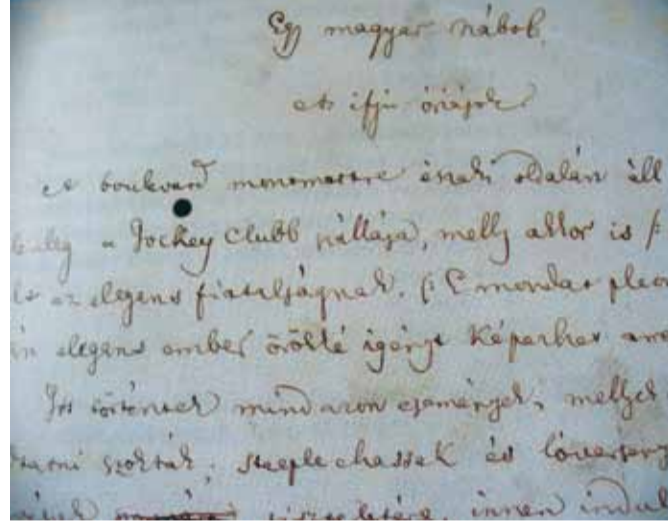 Egy magyar nábob.
Az ifjú óriások
A boulevard monomartre északi oldalán áll
a Jockey Clubb szállása, melly akkor is /:
az elegans fiatalságnak. (: E mondat pleon
elegans ember örökké igényt képezhet
Itt történtek mind azon események, mellyek
szokták; steeple chassek és lóverseny
innen indul